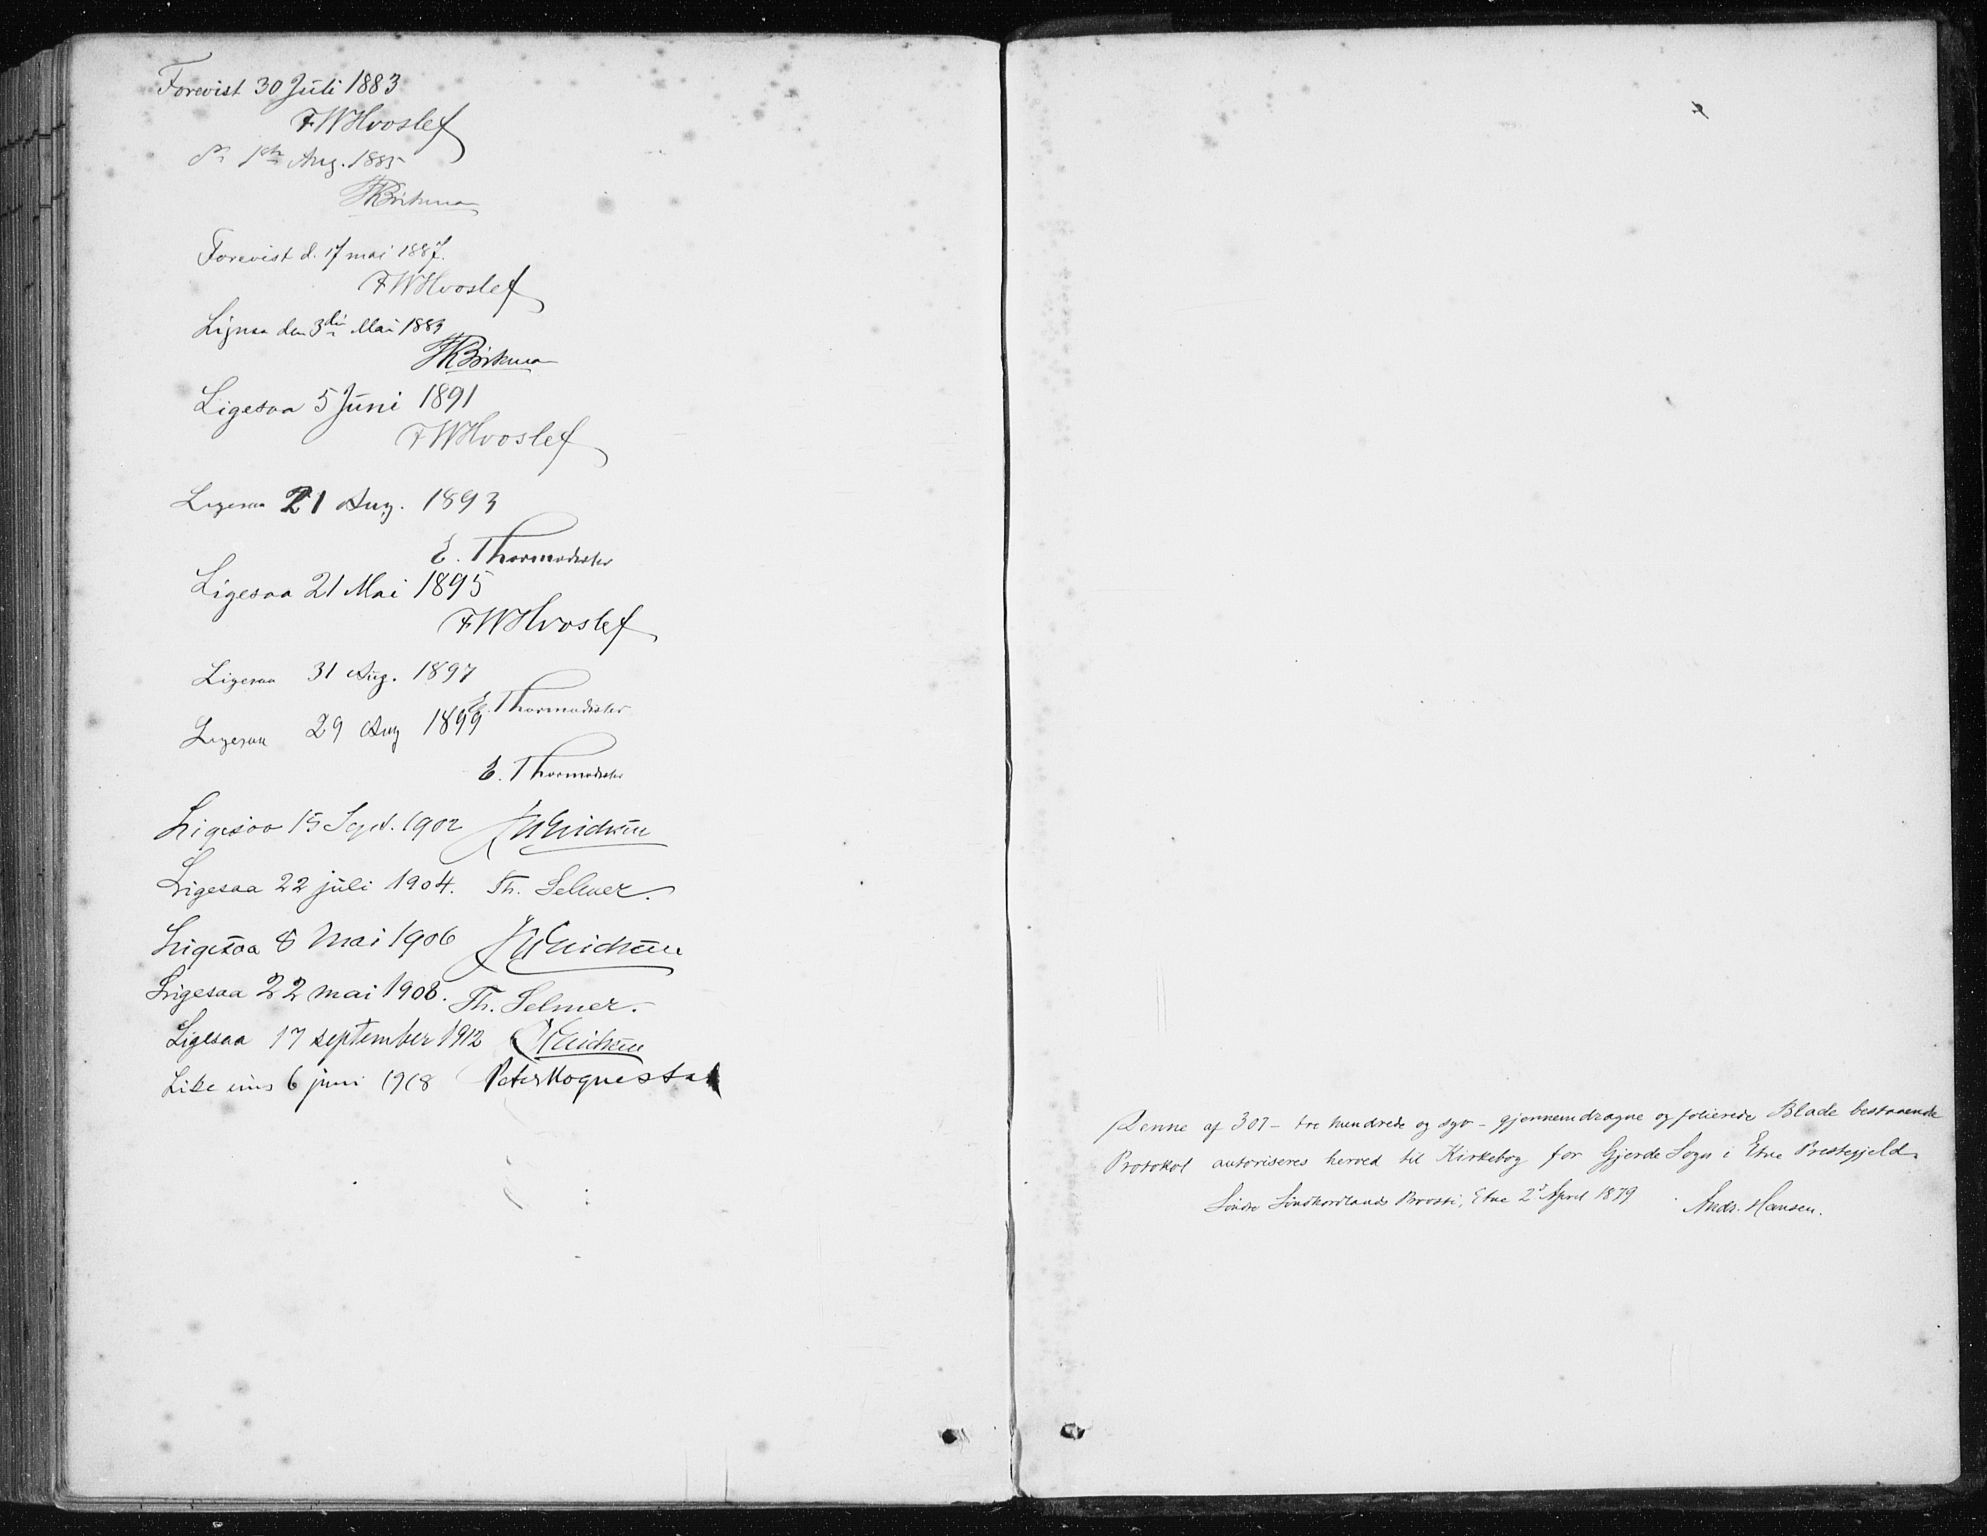 Forevist 30 Juli 1883
FWHvoslef
1ste Aug. 1885
Forevist d. 17 mai 1887.
FWHvoslef
den 3die Mai 1889
Ligesaa 5 Juni 1891
FWHvoslef
Ligesaa 21 Aug. 1893
E. Thormodsæter
Ligesaa 21 Mai 1895
FWHvoslef
Ligesaa 31 Aug. 1897
E. Thormodsæter
Ligesaa 29 Aug 1899
E. Thormodsæter
Ligesaa 15 Sept. 1902
Ligesaa 22 juli 1904. Th. Selmer.
Ligesaa 8 Mai 1906
Ligesaa 22 mai 1908. Th. Selmer.
Ligesaa 17 september 1912
Like eins 6 juni 1918 Peter Hognestad
Denne af 307 – tre hundrede og syv – gjennemdragne og folierede Blade bestaaende
Protokol autoriseres herved til Kirkebog for Gjerde Sogn i Etne Prestegjeld.
Søndre Søndhordlands Provsti, Etne 2d April 1879 Andr. Hansen.